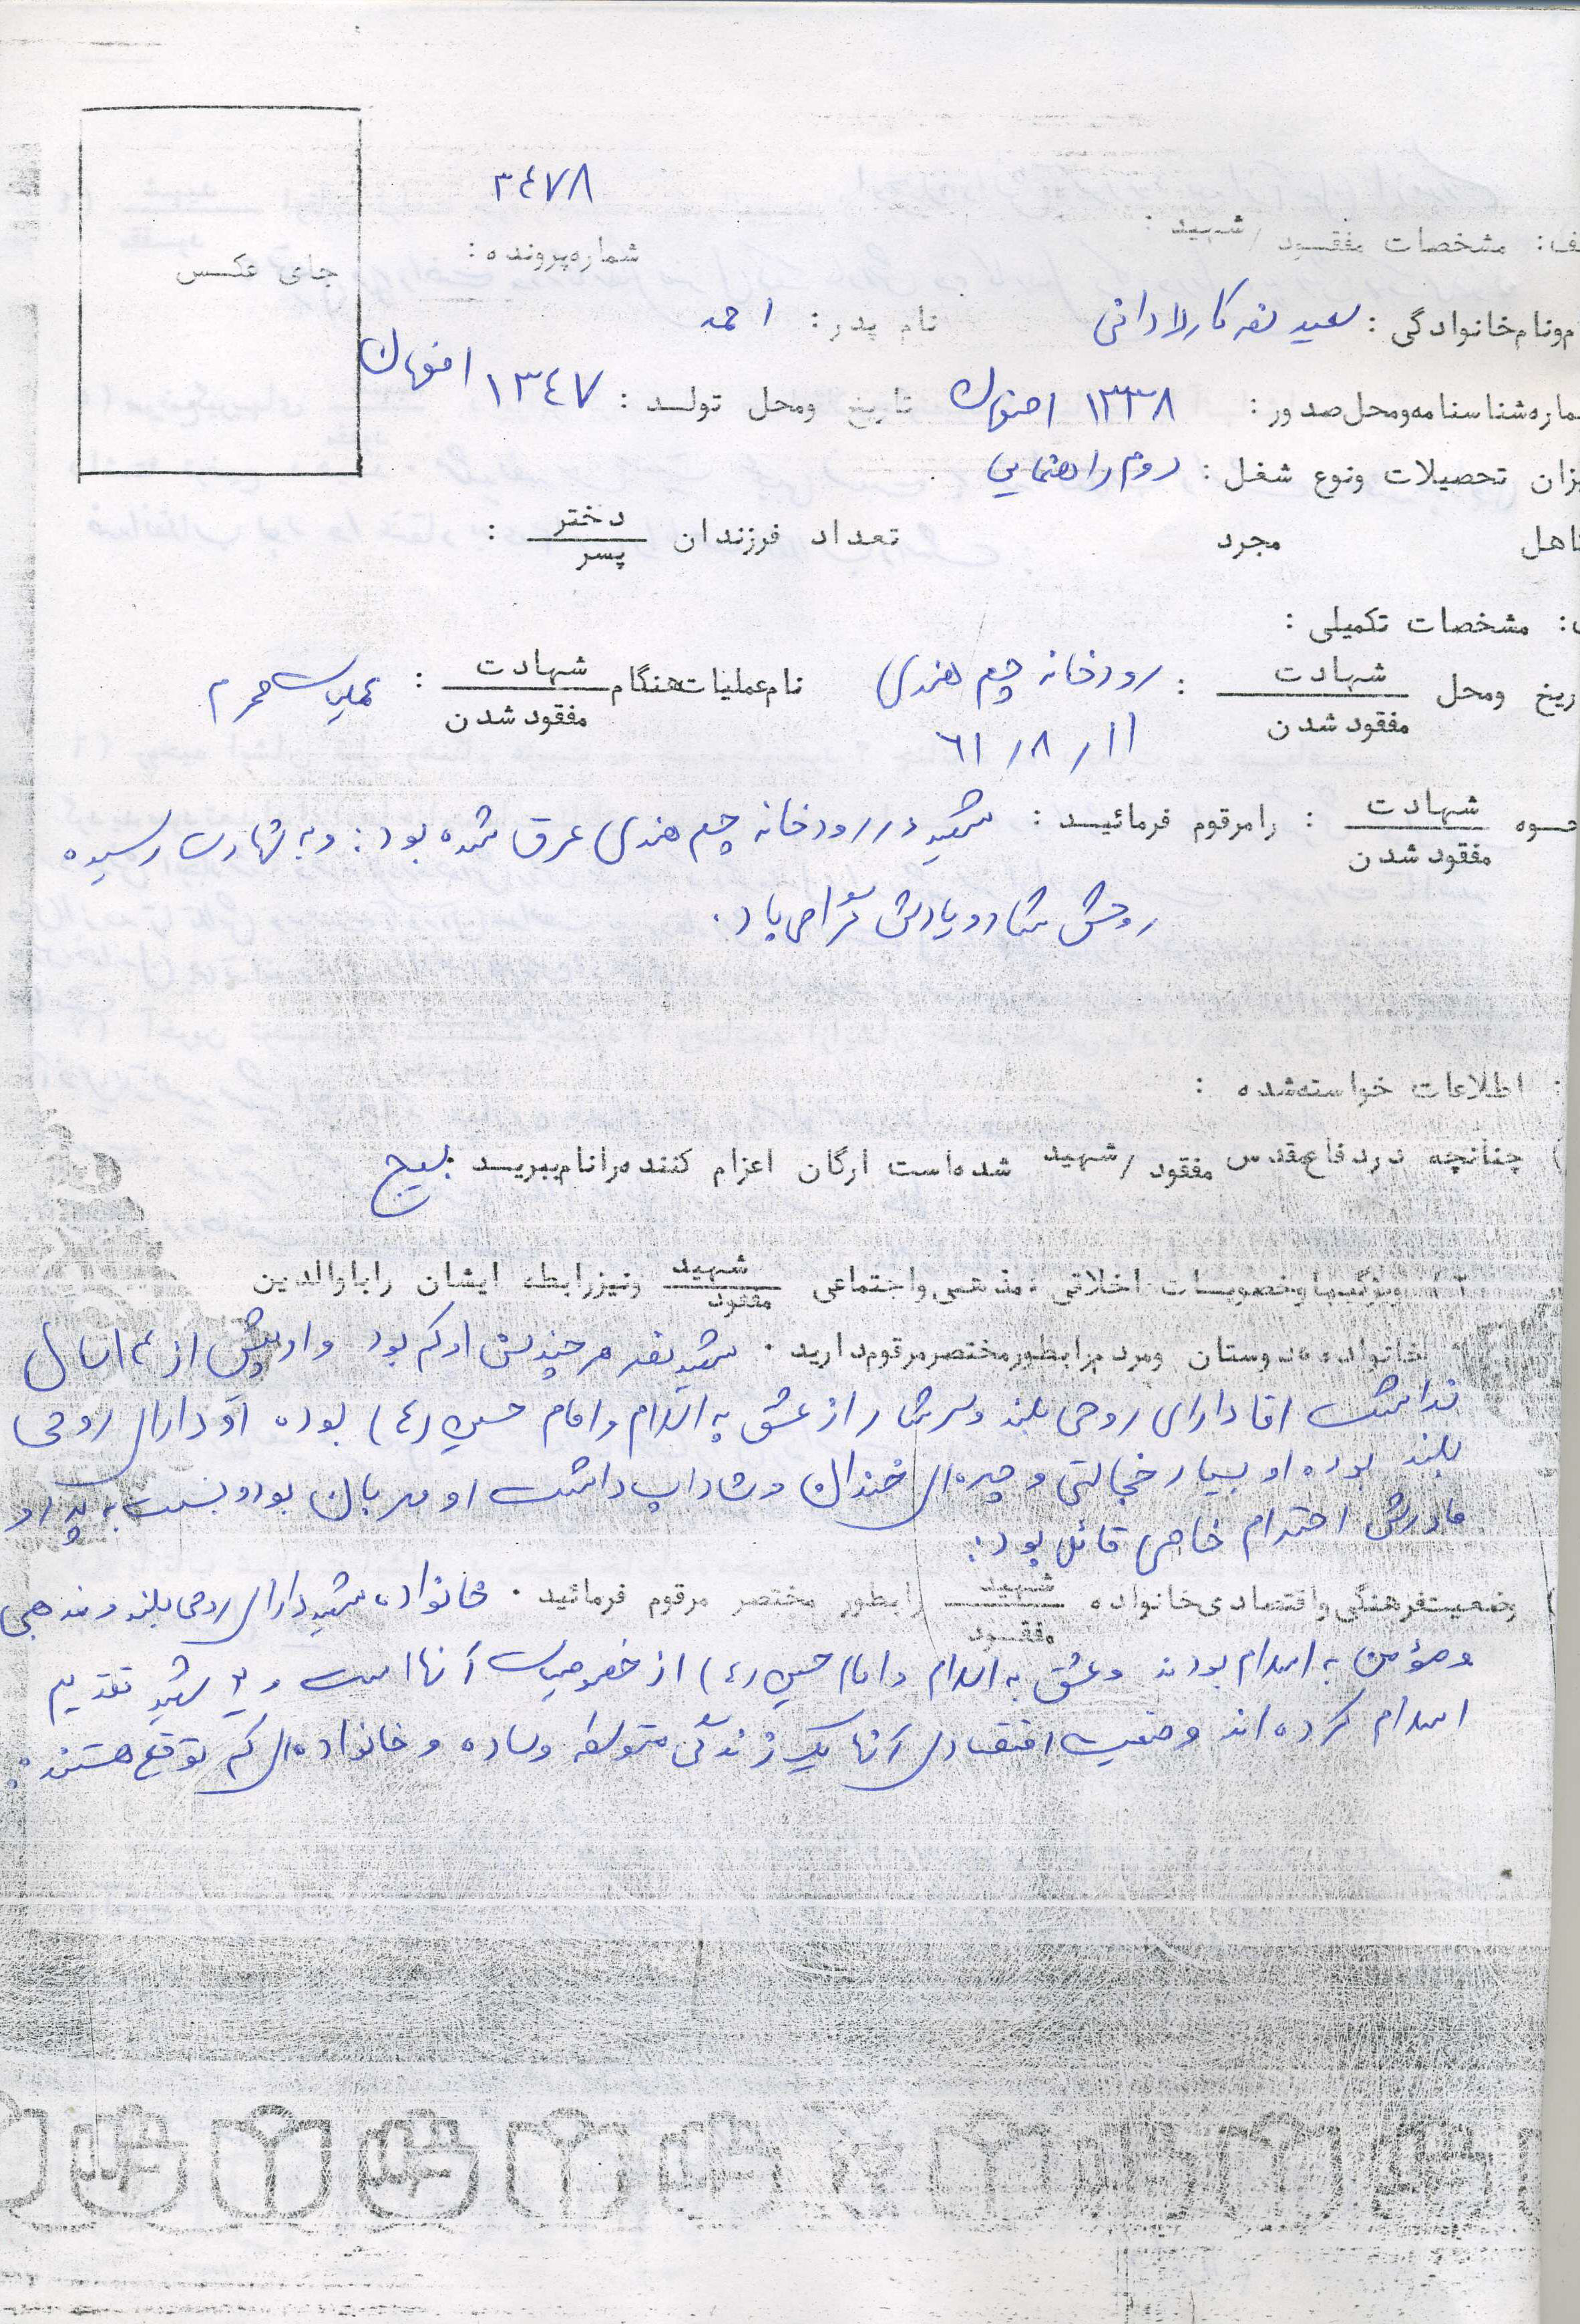 ۳٤۷۸
ف: مشخصات مفقود / شهید :
شماره پرونده :
جای عکس
م و نام خانوادگی : سعید نفر کارلادانی نام پدر : احمد
ماره شناسنامه و محل صدور : ۱۳۳۸ اصفهان تاریخ و محل تولد : ۱۳٤۷ اصفهان
یزان تحصیلات و نوع شغل : دوم راهنمایی
اهل مجرد تعداد فرزندان دختر / پسر :
: مشخصات تکمیلی :
ریخ و محل شهادت / مفقود شدن : رودخانه چم هندی نام عملیات هنگام شهادت / مفقود شدن : عملیات محرم
۱۱ / ۸ / ٦۱
حوه شهادت / مفقود شدن : را مرقوم فرمائید : شهید در رودخانه چم هندی غرق شده بود : و به شهادت رسیده
روحش شاد و یادش گرامی باد .
: اطلاعات خواسته شده :
) چنانچه در دفاع مقدس مفقود / شهید شده است ارگان اعزام کننده را نام ببرید : بسیج
ویژگیها و خصوصیات اخلاقی ، مذهبی و اجتماعی شهید / مفقود و نیز رابطه ایشان را با والدین
خانواده ، دوستان و مردم را بطور مختصر مرقوم دارید . شهید نفر هر چند سن او کم بود و او بیش از ۱٤ سال
نداشت اما دارای روحی بلند و سرشار از عشق به اسلام و امام حسین (ع) بوده او دارای روحی
بلند بوده او بسیار خجالتی و چهره ای خندان و شاداب داشت او مهربان بود و نسبت به پدر و
مادرش احترام خاصی قائل بود :
) وضعیت فرهنگی و اقتصادی خانواده شهید / مفقود را بطور مختصر مرقوم فرمائید . خانواده شهید دارای روحی بلند و مذهبی
و مؤمن به اسلام بودند و عشق به اسلام و امام حسین (ع) از خصوصیات آنها است و ۲ شهید تقدیم
اسلام کرده اند وضعیت اقتصادی آنها یک زندگی متوسط و ساده و خانواده ای کم توقع هستند :